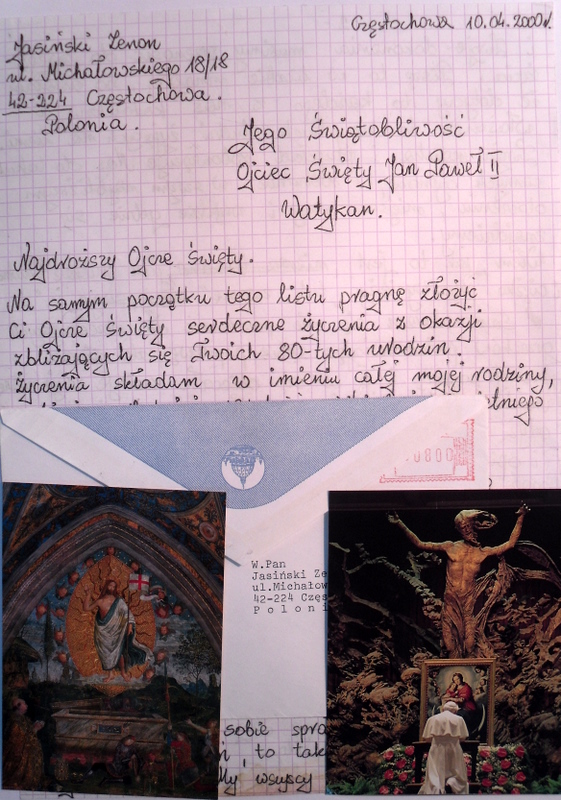 Częstochowa 10.04.2000r.
Jasiński Zenon
ul. Michałowskiego 18/18
42-224 Częstochowa.
Polonia.
Jego Świątobliwość
Ojciec Święty Jan Paweł II
Watykan.
Najdroższy Ojcze Święty.
Na samym początku tego listu pragnę złożyć
Ci Ojcze Święty serdeczne życzenia z okazji
zbliżających się Twoich 80-tych urodzin.
Życzenia składam w imieniu całej mojej rodziny,
0080
W.Pan
Jasiński Ze
ul.Michałow
42-224 Częs
P o l o n i
sobie spra
to tak
My, wszyscy